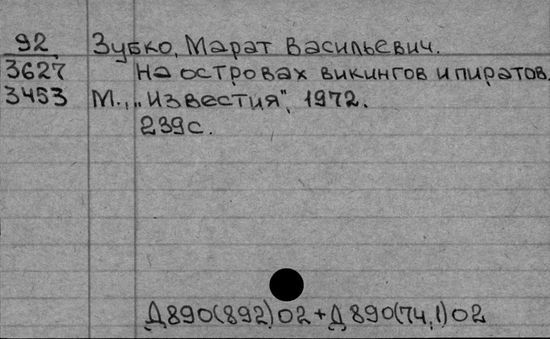 92 Зубко, Марат Васильевич.
3627 На островах викингов и пиратов.
3453 М., „Известия", 1972.
239 с.
Д890(892)02+Д890(74,1)02